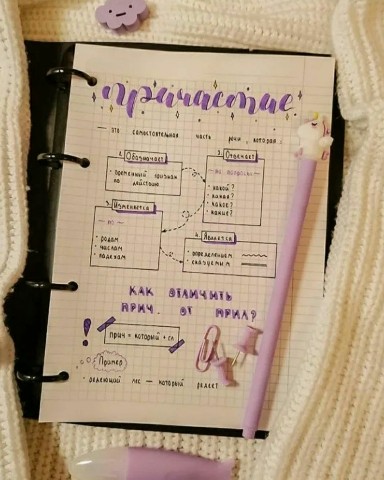 причастие
— это самостоятельная часть речи, которая:
1. Обозначает
• временный признак
по действию
2. Отвечает
— на вопросы —
• какой?
• какая?
• какое?
• какие?
3. Изменяется
— по —
• родам
• числам
• падежам
4. Является
• определением
• сказуемым
КАК ОТЛИЧИТЬ
ПРИЧ. ОТ ПРИЛ?
! прич = который + гл
Пример
• редеющий лес — который редеет